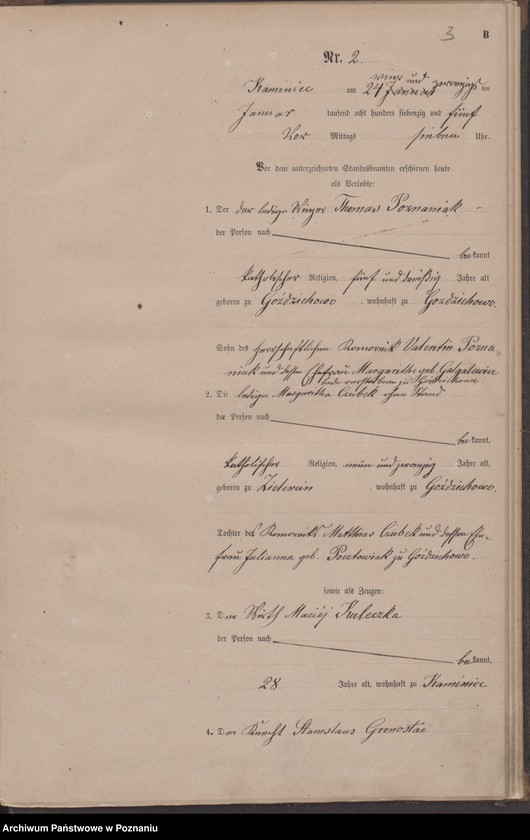 3
B
Nr. 2.
vier und zwanzigst
Kaminiec am 24 Januar ten
Januar tausend acht hundert siebenzig und fünf
Vor Mittags sieben Uhr.
Vor dem unterzeichneten Standesbeamten erschienen heute
als Verlobte:
1. Der der ledige Thomas Poznaniak
der Person nach
bekannt
katholischer Religion, fünf und dreißig Jahre alt
geboren zu Goździchowo, wohnhaft zu Goździchowo.
Sohn des herrschaftlichen Komornik Valentin Pozna-
niak und dessen Ehefrau Margarithe geb. Galgalewicz
beide verstorben zu Goździchowo
2. Die ledige Margaritha Czubek ohne Stand
der Person nach
bekannt,
katholischer Religion, neun und zwanzig Jahre alt,
geboren zu wohnhaft zu Goździchowo.
Tochter des Komorniks Matthias Czubek und dessen Ehe-
frau Julianna geb. Pocztowiak zu Goździchowo.
sowie als Zeugen:
3. Der Wirth Maciéj Kuleczka
der Person nach
bekannt,
28 Jahre alt, wohnhaft zu Kaminiec
4. Der Knecht Stanislaus Gronostai
Archiwum Państwowe w Poznaniu